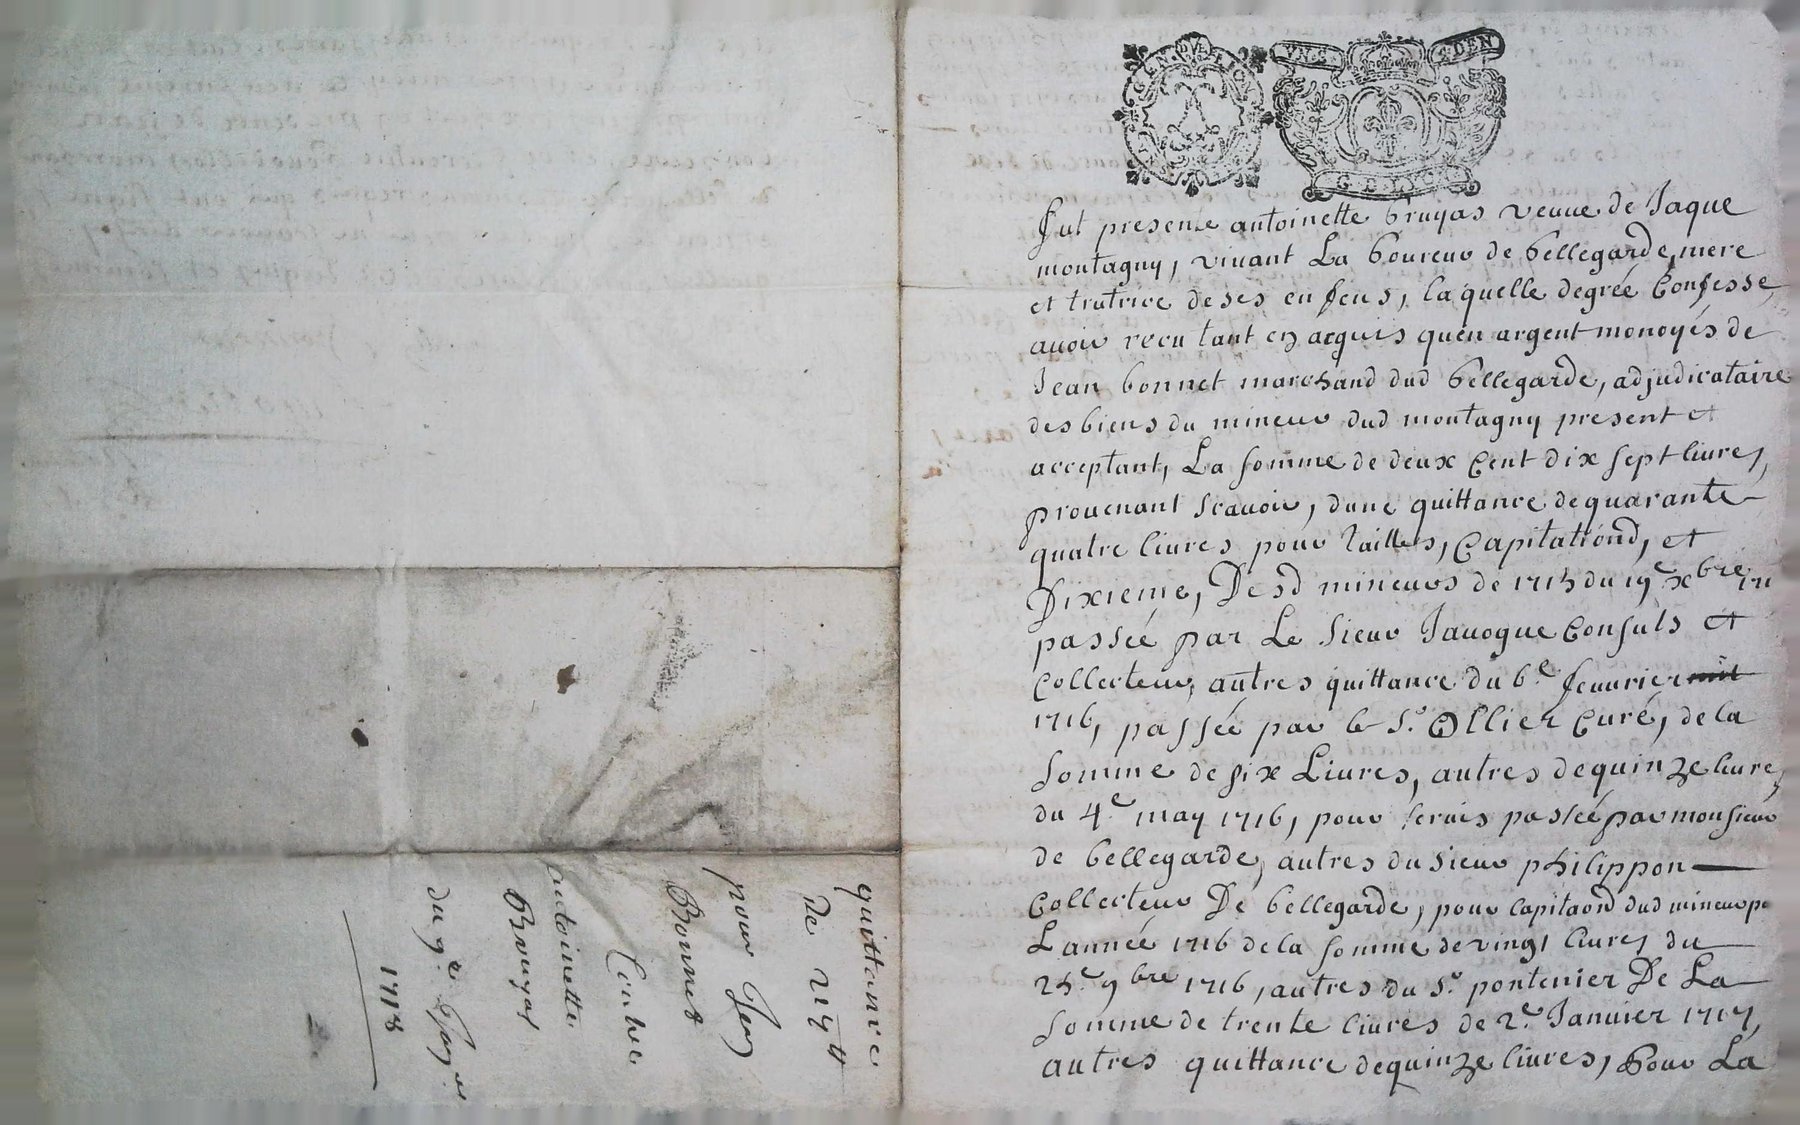 GEN. DE LION
VN S. & DEN
G. DE LYON
fut presente antoinette bruyas veuue de Jaque
montagny, viuant La boureur de bellegarde, mere
et trutrice de ses en fens, la quelle de gréé Confesse,
auoir recu tant en acquis quen argent monoyés de
Jean bonnet marchand dud bellegarde, adjudicataire
des biens du mineur dud montagny present et
acceptant, La somme de deux Cent dix sept liures,
prouenant scauoir, dune quittance de quarante
quatre liures pour Tailles, Capitationd, et
Dixieme, De sd mineurs de 1715 du 19e xbre
passéé par Le sieur Jauogue Consuls et
Collecteur, autres quittance du 6e feuurier
1716, passéé par le Sr. Ollier Curé, de la
somme de six Liures, autres de quinze liures,
du 4e. may 1716, pour seruis passéé par monsieur
de bellegarde, autres du sieur philippon
Collecteur De bellegarde, pour Capitaond dud mineur po
Lannéé 1716 de la somme de vingt liures du
25e. 9bre 1716, autres du Sr. pontenier De La
somme de trente liures de 2e. Januier 1717,
autres quittance de quinze liures, Pour La
quittance
De 217 tt
pour Jean
Bonnet
Contre
antoinette
Bruyas
du 9e
1718